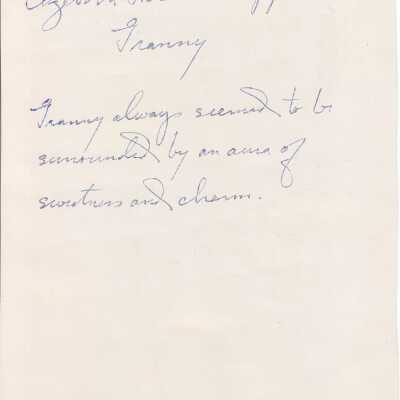 Granny
Granny always seemed to be
surrounded by an aura of
sweetness and charm.